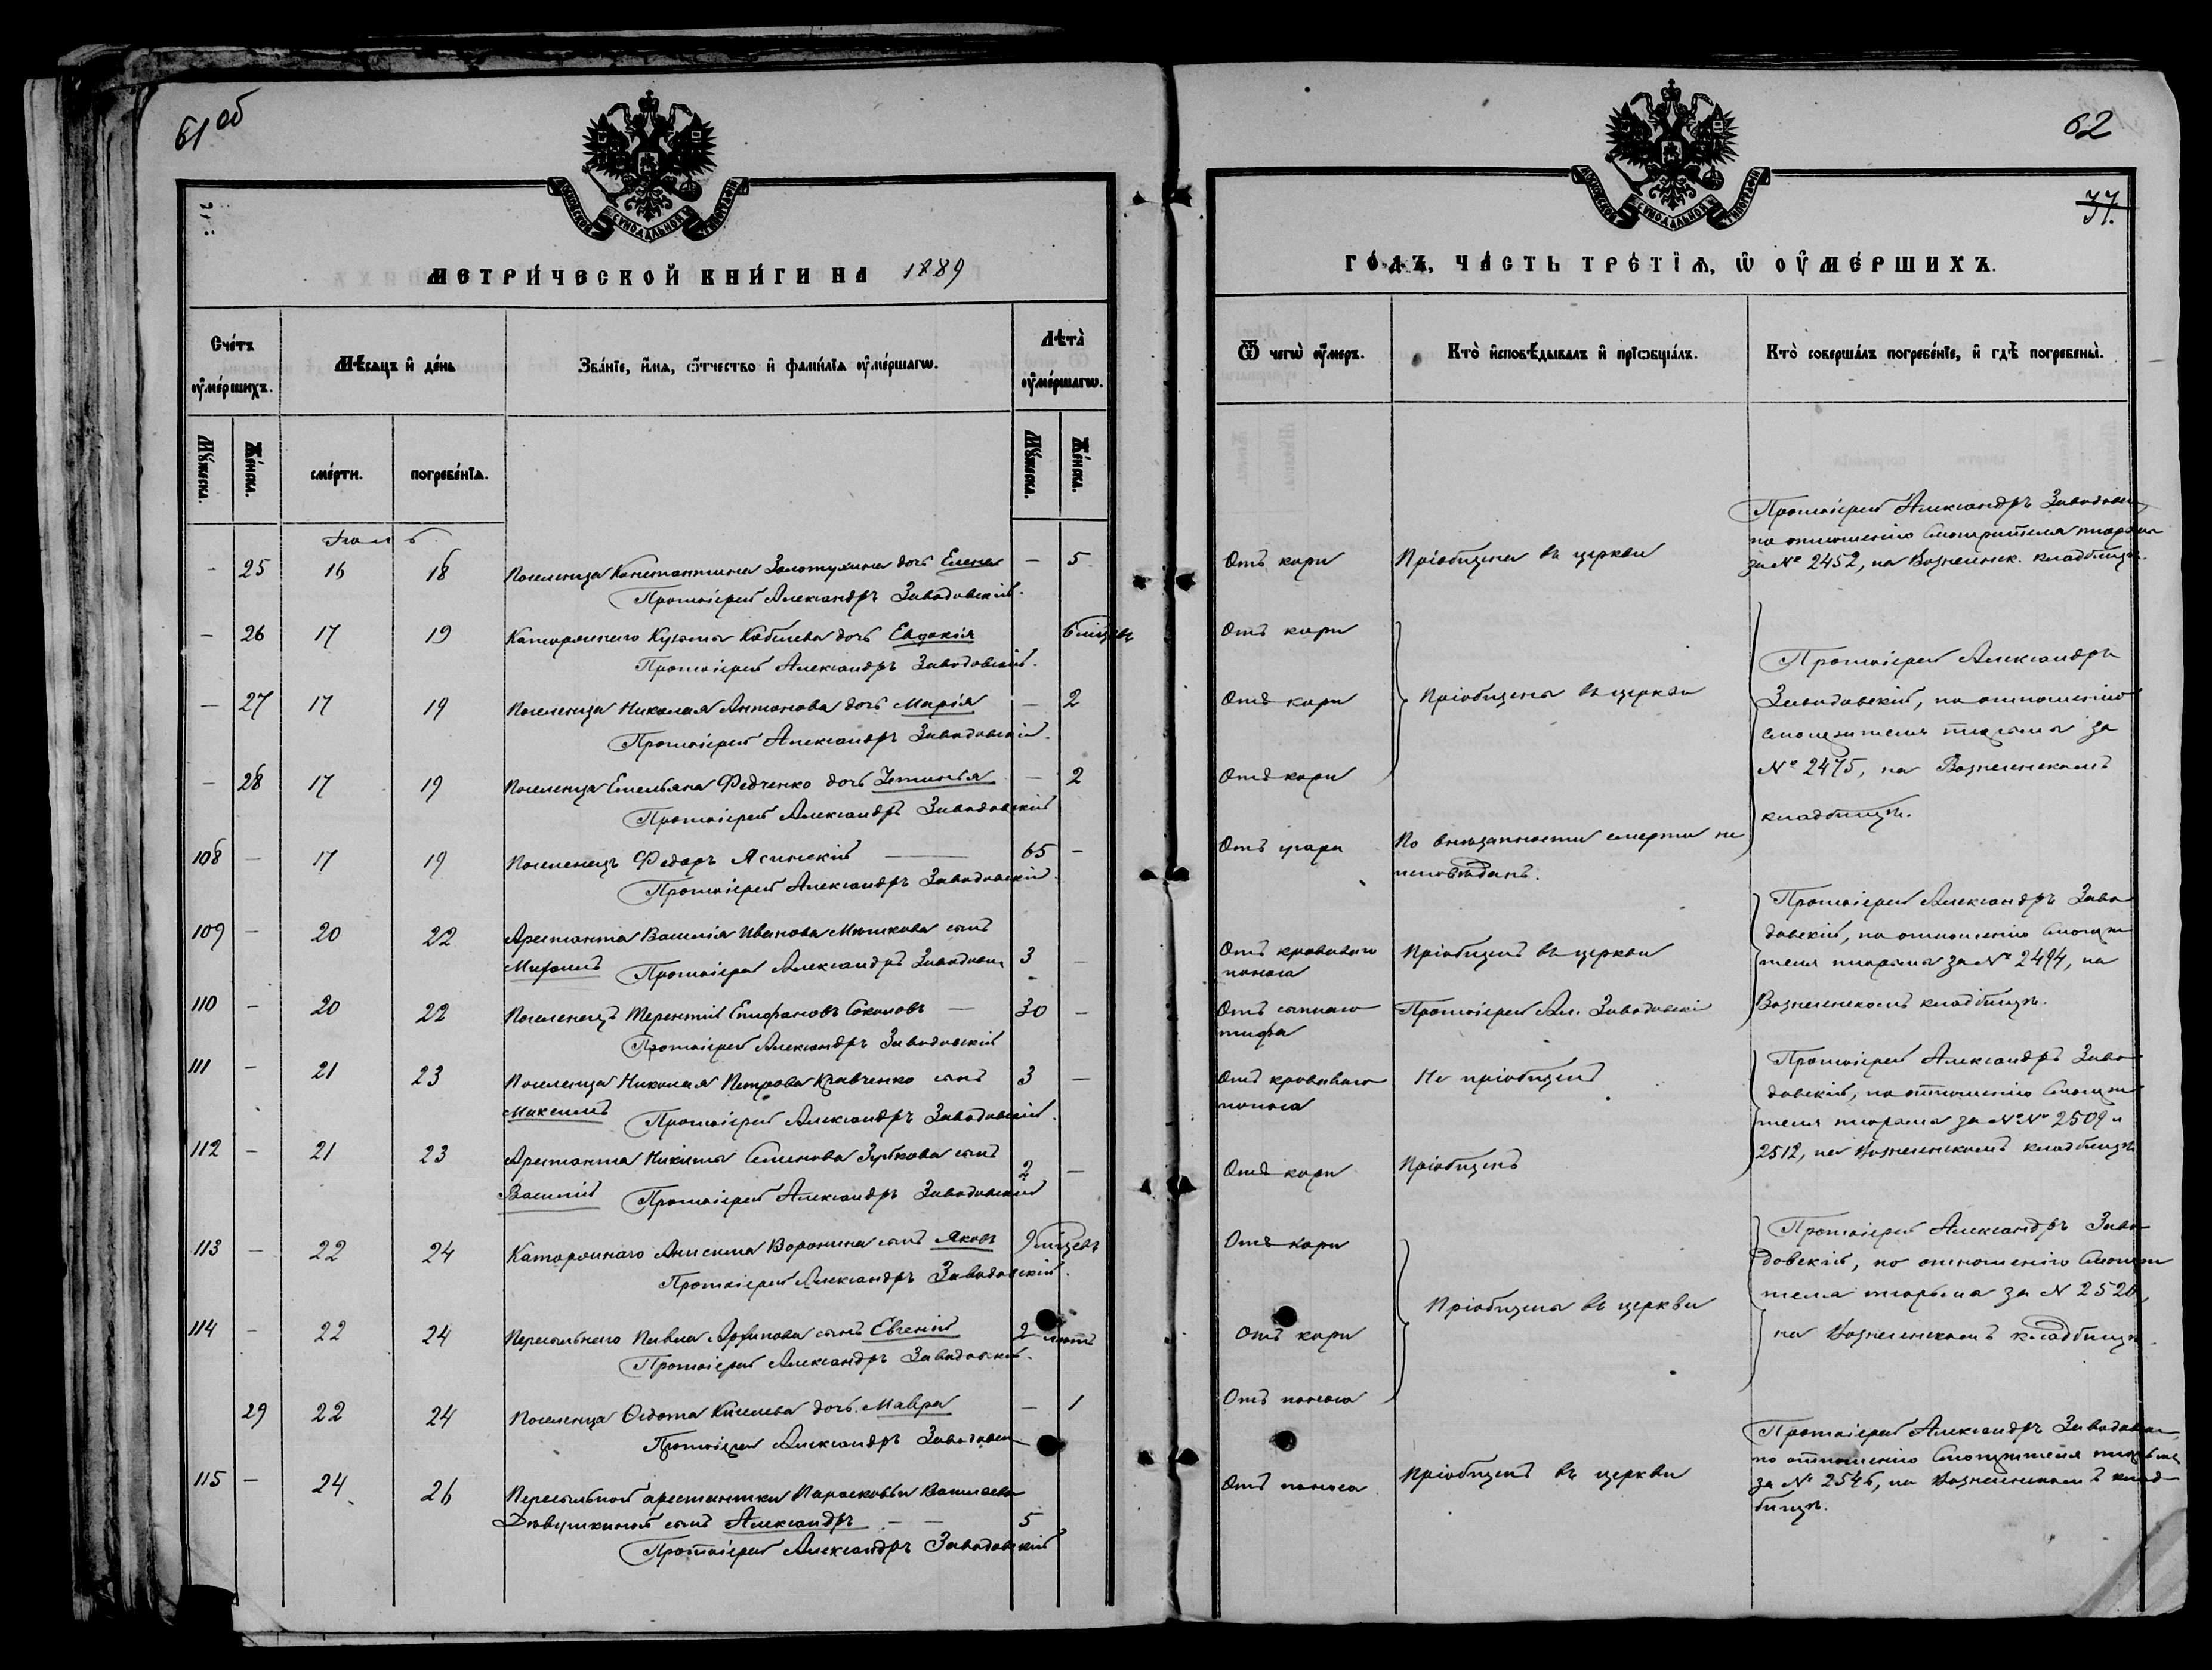 61 об
МОСКОВСКОЙ СѴНОДАЛЬНОЙ ТИПОГРАФІИ
МЕТРИ́ЧЕСКОЙ КНИ́ГИ НА 1889
Сче́тъ ᲂу҆ме́ршихъ.
Мѣ́сяцъ и҆ де́нь
Зва́нїе, и҆́мѧ, ѻ҆́тчество и҆ фамѝлїѧ ᲂу҆ме́ршагѡ.
Лѣ́та ᲂу҆ме́ршагѡ.
Мꙋ́жеска.
Же́нска.
сме́рти.
погребе́нїѧ.
Мꙋ́жеска.
Же́нска.
Іюль
- 25 16 18 Поселенца Константина Золотухина дочь Елена - 5
Протоіерей Александръ Заводовскій.
- 26 17 19 Каторжнаго Кузьмы Кобелева дочь Евдокія 6 мѣсяц
Протоіерей Александръ Заводовскій.
- 27 17 19 Поселенца Николая Антонова дочь Марія - 2
Протоіерей Александръ Заводовскій.
- 28 17 19 Поселенца Емельяна Федченко дочь Устинья - 2
Протоіерей Александръ Заводовскій
108 - 17 19 Поселенецъ Федоръ Ясинскій 65 -
Протоіерей Александръ Заводовскій.
109 - 20 22 Арестанта Василія Иванова Мишкова сынъ
Михаилъ Протоіерей Александръ Заводовск 3 -
110 - 20 22 Поселенецъ Терентій Епифановъ Соколовъ - 30 -
Протоіерей Александръ Заводовскій
111 - 21 23 Поселенца Николая Петрова Кравченко сынъ 3 -
Максимъ Протоіерей Александръ Заводовскій.
112 - 21 23 Арестанта Никиты Семенова Зубкова сынъ 2 -
Василій Протоіерей Александръ Заводовскій
113 - 22 24 Каторжнаго Анисима Воронина сынъ Яковъ 9 мѣсяцевъ
Протоіерей Александръ Заводовскій.
114 - 22 24 Пересыльнаго Павла Архипова сынъ Евгеній 2 лѣтъ
Протоіерей Александръ Заводовскій.
29 22 24 Поселенца Ѳедота Киселева дочь Мавра - 1
Протоіерей Александръ Заводовск
115 - 24 26 Пересыльной арестантки Парасковьи Василевой
Дѣвушкиной сынъ Александръ - - 5
Протоіерей Александръ Заводовскій
62
37.
МОСКОВСКОЙ СѴНОДАЛЬНОЙ ТИПОГРАФІИ
ГО́ДЪ, ЧА́СТЬ ТРЕ́ТЇѦ, Ѡ҆ ОУ҆МЕ́РШИХЪ.
Ѿ чегѡ̀ ᲂу҆́меръ.
Кто̀ и҆сповѣ́дывалъ и҆ прїѡбща́лъ.
Кто̀ соверша́лъ погребе́нїе, и҆ гдѣ̀ погребены̀.
Отъ кори Пріобщена въ церкви
Протоіерей Александръ Заводовск
по отношенію Смотрителя тюрьмы
за № 2452, на Вознесенск. кладбищѣ.
Отъ кори
Отъ кори Пріобщены въ церкви
Отъ кори
Протоіерей Александръ
Заводовскій, по отношенію
смотрителя тюрьмы за
№ 2475, на Вознесенскомъ
кладбищѣ.
Отъ угара По внезапности смерти не
исповѣданъ.
Отъ кроваваго поноса Пріобщенъ въ церкви
Отъ сыпнаго тифа Протоіерей Ал. Заводовскій
Протоіерей Александръ Заво
довскій, по отношенію Смотри
теля тюрьмы за № 2494, на
Вознесенскомъ кладбищѣ.
Отъ кроваваго поноса Не пріобщенъ
Отъ кори Пріобщенъ
Протоіерей Александръ Заво
довскій, по отношенію Смотри
теля тюрьмы за №№ 2509 и
2512, на Вознесенскомъ кладбищѣ
Отъ кори
Отъ кори Пріобщены въ церкви
Отъ поноса
Протоіерей Александръ Заво
довскій, по отношенію Смотри
теля тюрьмы за № 2520,
на Вознесенскомъ кладбищѣ.
Отъ поноса Пріобщенъ въ церкви
Протоіерей Александръ Заводовск
по отношенію Смотрителя тюрьмы
за № 2546, на Вознесенскомъ клад
бищѣ.